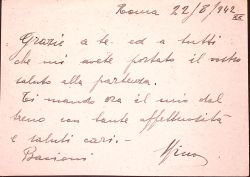 Roma 22/8/942 XX
Grazie a te ed a tutti
che mi avete portato il vostro
saluto alla partenza.
Ti mando ora il mio dal
treno con tante affettuosità
e saluti cari -
Bacioni